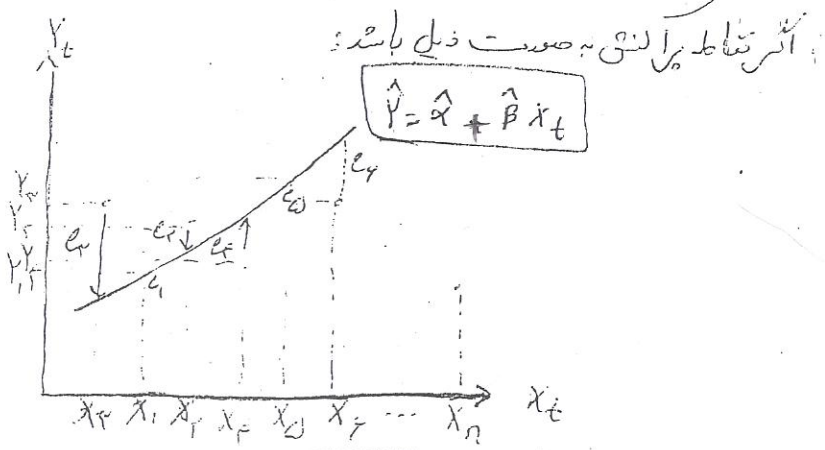 اگر نقاط پراکنش به صورت ذیل باشد:
Ŷ = α̂ + β̂ X_t
Y_t
e_۳
e_۲
e_۴
e_۱
e_۵
e_۶
X_۳ X_۱ X_۲ X_۴ X_۵ X_۶ ... X_n X_t